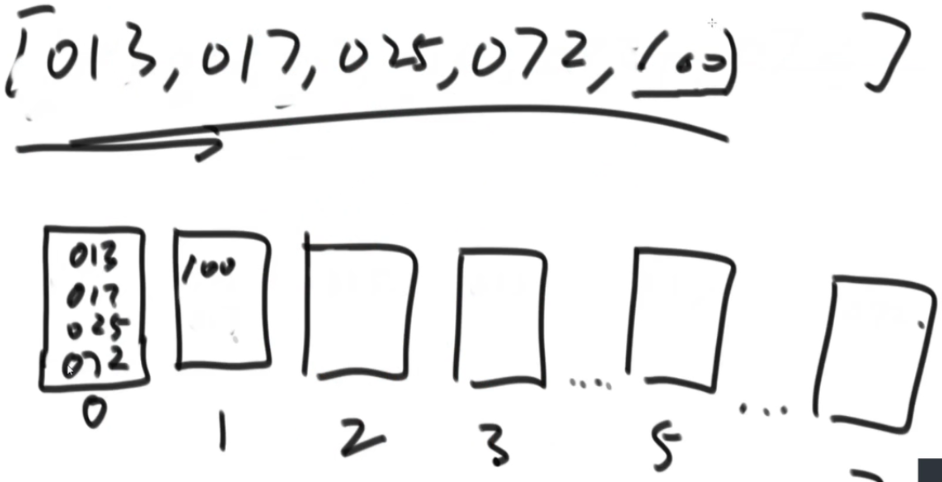 [013, 017, 025, 072, 100) ]
013 100
017
025
072
0 1 2 3 .... 5 ...